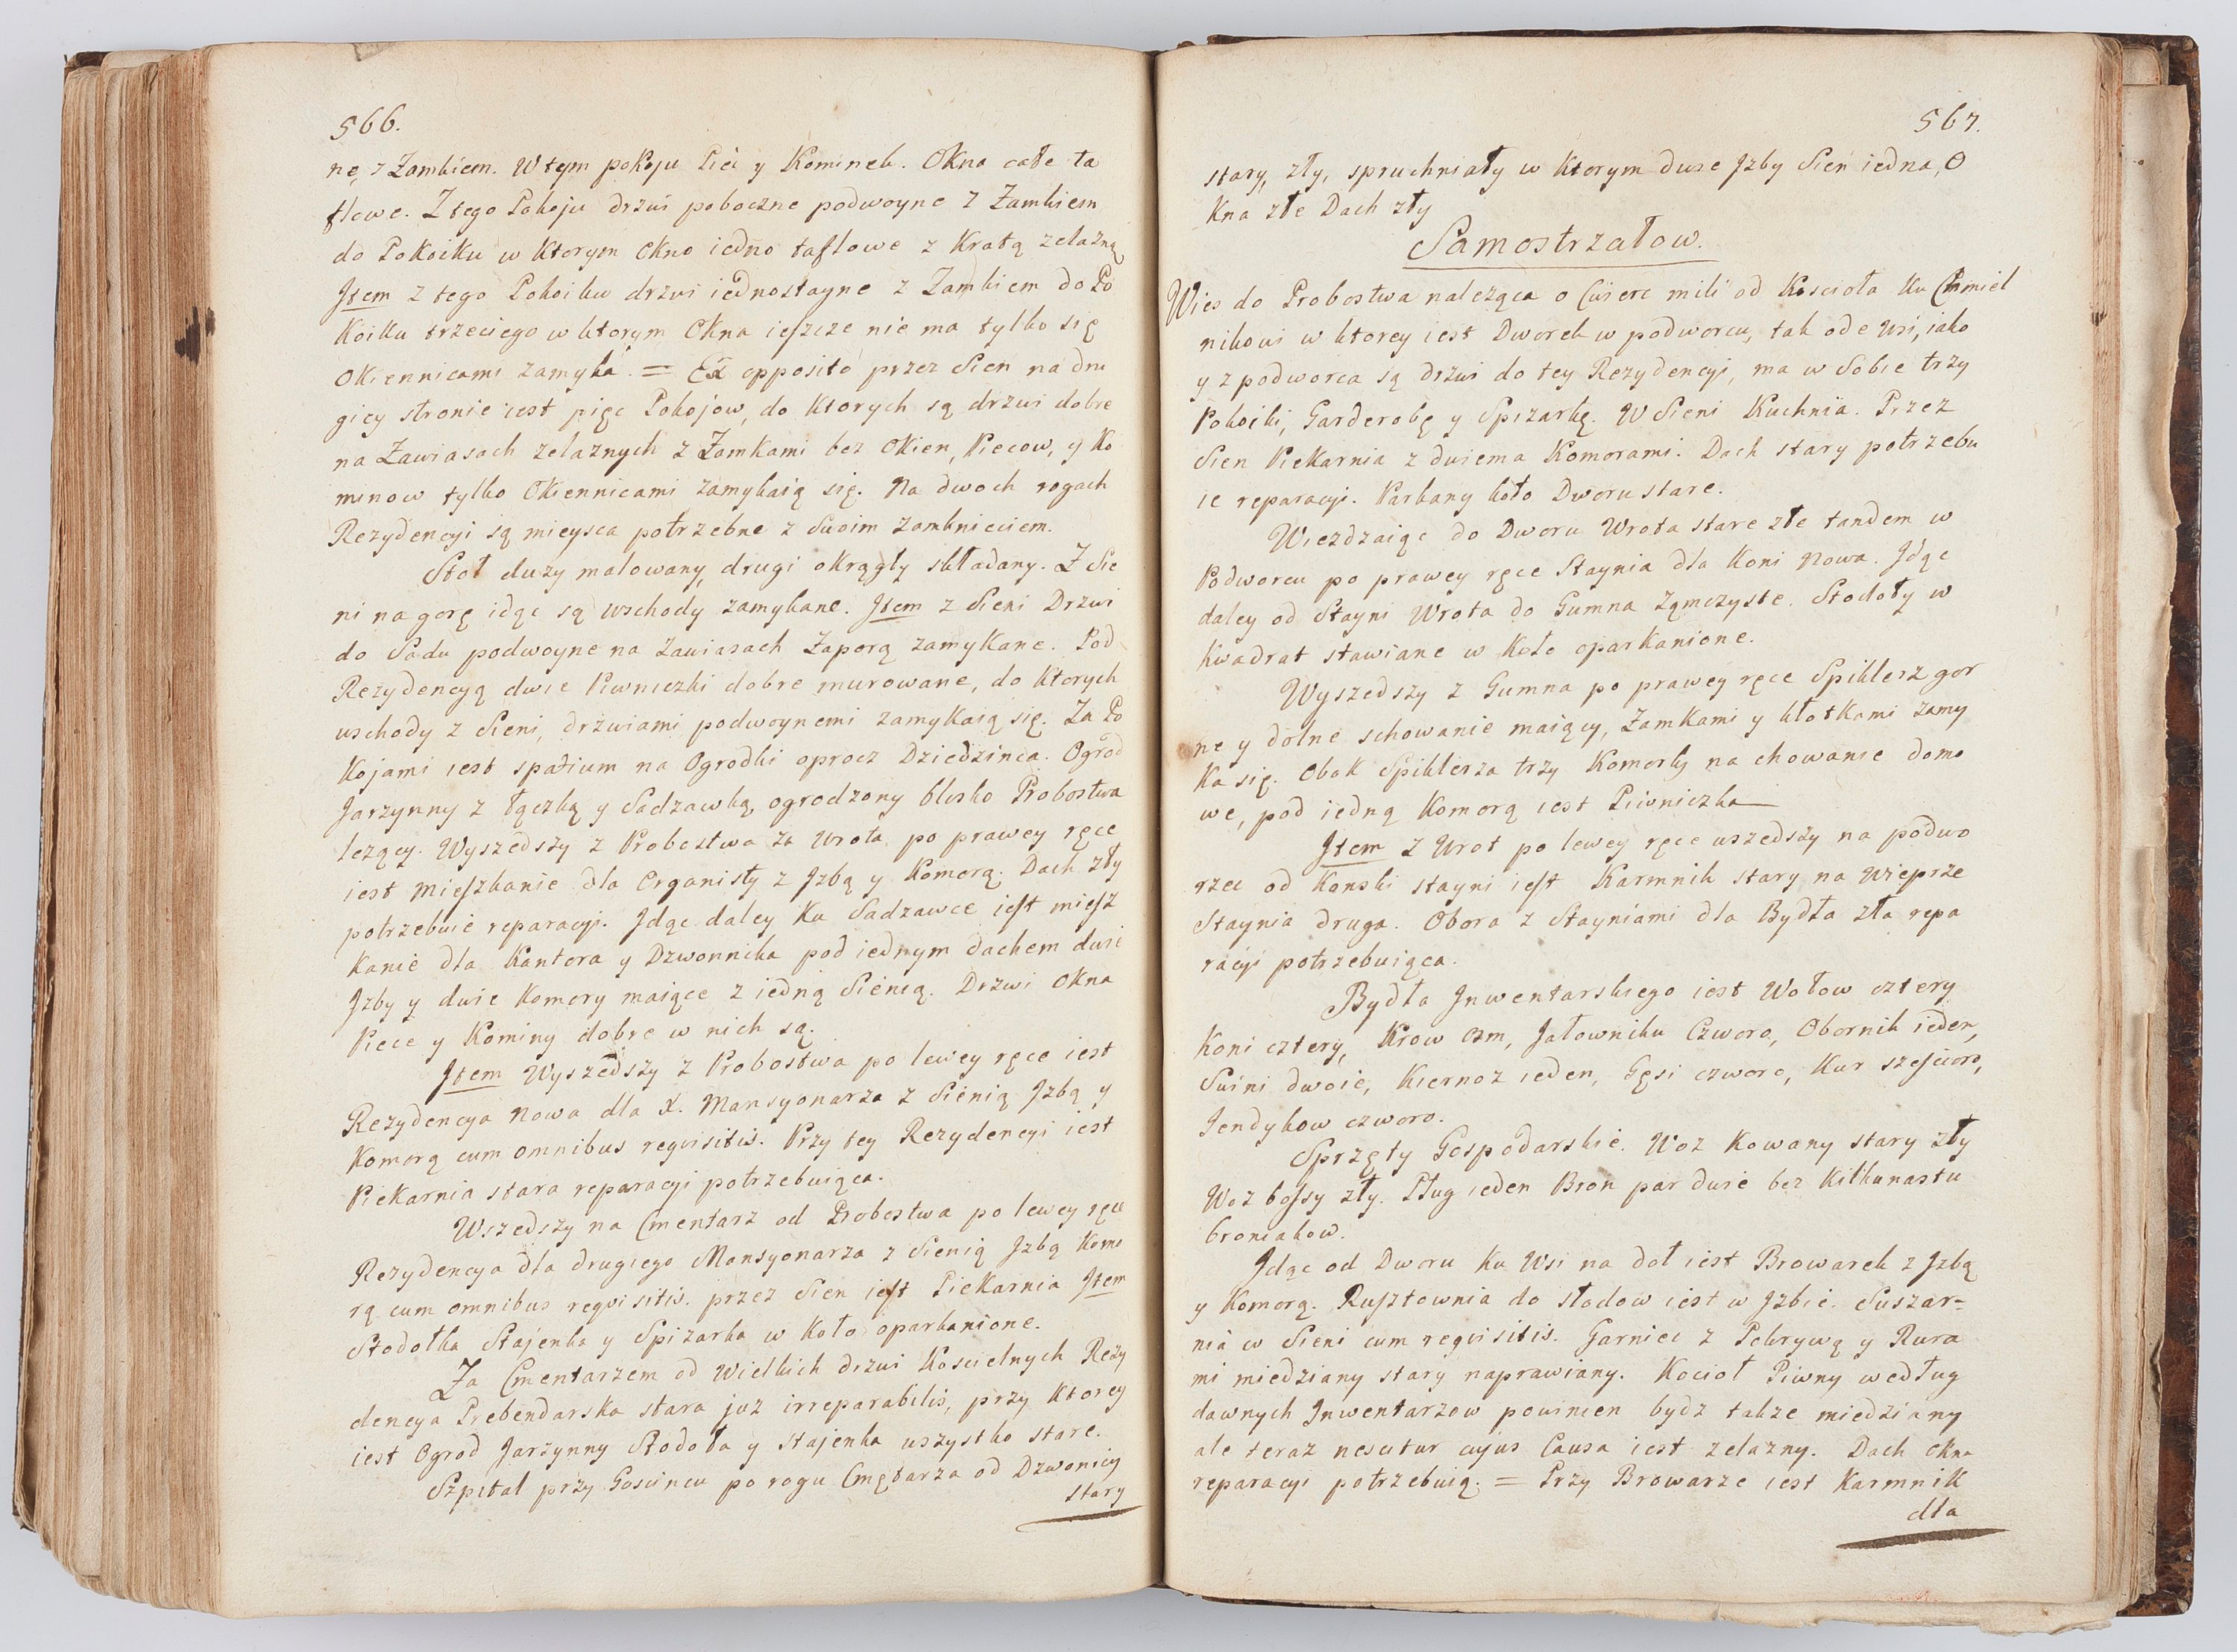 566.
ne, z Zamkiem. W tym pokoju Piec y Kominek. Okna całe ta
flowe. Z tego Pokoju drzwi poboczne podwoyne z Zamkiem
do Pokoiku w ktorym Okno iedno taflowe z Kratą zelazną
Jtem z tego Pokoiku drzwi iednostayne z Zamkiem do Po
koiku trzeciego w ktorym Okna ieszcze nie ma tylko się
Okiennicami zamyka. = Ex opposito przez Sien na dru
giey stronie iest pięc Pokojow, do ktorych są drzwi dobre
na Zawiasach zelaznych z Zamkami bez Okien, Piecow, y Ko
minow tylko Okiennicami zamykaią się. Na dwoch rogach
Rezydencyi są mieysca potrzebne z Swoim zamknieciem.
Stoł duzy malowany, drugi okrągły składany. Z Sie
ni na gorę idąc są wschody zamykane. Jtem z Sieni Drzwi
do Sadu podwoyne na zawiasach Zaporą zamykane. Pod
Rezydencyą dwie Piwniczki dobre murowane, do ktorych
wschody z Sieni, drzwiami podwoynemi zamykaią się. Za Po
kojami iest spatium na Ogrodki oprocz Dziedzinca. Ogrod
Jarzynny z łączką y Sadzawką ogrodzony blisko Probostwa
lezący. Wyszedszy z Probostwa za wrota po prawey ręce
iest mieszkanie dla Organisty z Jzbą y Komorą. Dach zły
potrzebuie reparacyi. Jdąc daley ku Sadzawce iest miesz
kanie dla Kantora y Dzwonnika pod iednym dachem dwie
Jzby y dwie Komory maiące z iedną Sienią. Drzwi Okna
Piece y Kominy dobre w nich są.
Jtem Wyszedszy z Probostwa po lewey ręce iest
Rezydencya nowa dla X. Mansyonarza z Sienią Jzbą y
Komorą cum omnibus reqvisitis. Przy tey Rezydencyi iest
Piekarnia stara reparacyi potrzebuiąca.
Wszedszy na Cmentarz od Probostwa po lewey ręce
Rezydencya dla drugiego Mansyonarza z Sienią Jzbą Komo
rą cum omnibus reqvisitis. przez Sien iest Piekarnia Jtem
Stodołka Stajenka y Spizarka w koło oparkanione.
Za Cmentarzem od Wielkich drzwi Koscielnych Rezy
dencya Prebendarska stara juz irreparabilis, przy ktorey
iest Ogrod Jarzynny Stodoła y stajenka wszystko stare.
Szpital przy Goscincu po rogu Cmętarza od Dzwonicy
stary
567.
stary, zły, spruchniały w ktorym dwie Jzby Sien iedna, O
kna złe Dach zły
Samostrzałow.
Wies do Probostwa naleząca o Cwierc mili od Koscioła ku Chmiel
nikowi w ktorey iest Dworek w podworcu, tak ode wsi, iako
y z podworca są drzwi do tey Rezydencyi, ma w Sobie trzy
Pokoiki, Garderobę y Spizarkę. W Sieni Kuchnia. Przez
Sien Piekarnia z dwiema Komorami. Dach stary potrzebu
ie reparacyi. Parkany koło Dworu stare.
Wiezdzaiąc do Dworu Wrota stare złe tandem w
Podworcu po prawey ręce Staynia dla Koni nowa. Jdąc
daley od Stayni Wrota do Gumna Zamczyste. Stodoły w
kwadrat stawiane w koło oparkanione.
Wyszedszy z Gumna po prawey ręce Spiklerz gor
ne y dolne schowanie maiący, Zamkami y kłotkami zamy
ka się. Obok Spiklerza trzy Komorky na chowanie domo
we, pod iedną Komorą iest Piwniczka
Jtem z Wrot po lewey ręce wszedszy na podwo
rzec od Konski stayni iest Karmnik stary na wieprze
Staynia druga. Obora z Stayniami dla Bydła zła repa
racyi potrzebuiąca.
Bydła Jnwentarskiego iest Wołow cztery
Koni cztery, Krow osm, Jałowniku Czworo, Obornik ieden,
Swini dwoie, Kiernoz ieden, Gęsi czworo, Kur szescioro,
Jendykow czworo.
Sprzęty Gospodarskie. Woz Kowany stary zły
Woz bossy zły. Pług ieden Bron par dwie bez kilkunastu
broniakow.
Jdąc od Dworu ku Wsi na doł iest Browarek z Jzbą
y Komorą. Rusztownia do słodow iest w Jzbie. Suszar=
nia w Sieni cum reqvisitis. Garniec z Pokrywą y Rura
mi miedziany stary naprawiany. Kocioł Piwny według
dawnych Jnwentarzow powinien bydz takze miedziany
ale teraz nescitur cujus Causa iest zelazny. Dach okna
reparacyi potrzebuią. = Przy Browarze iest Karmnik
dla